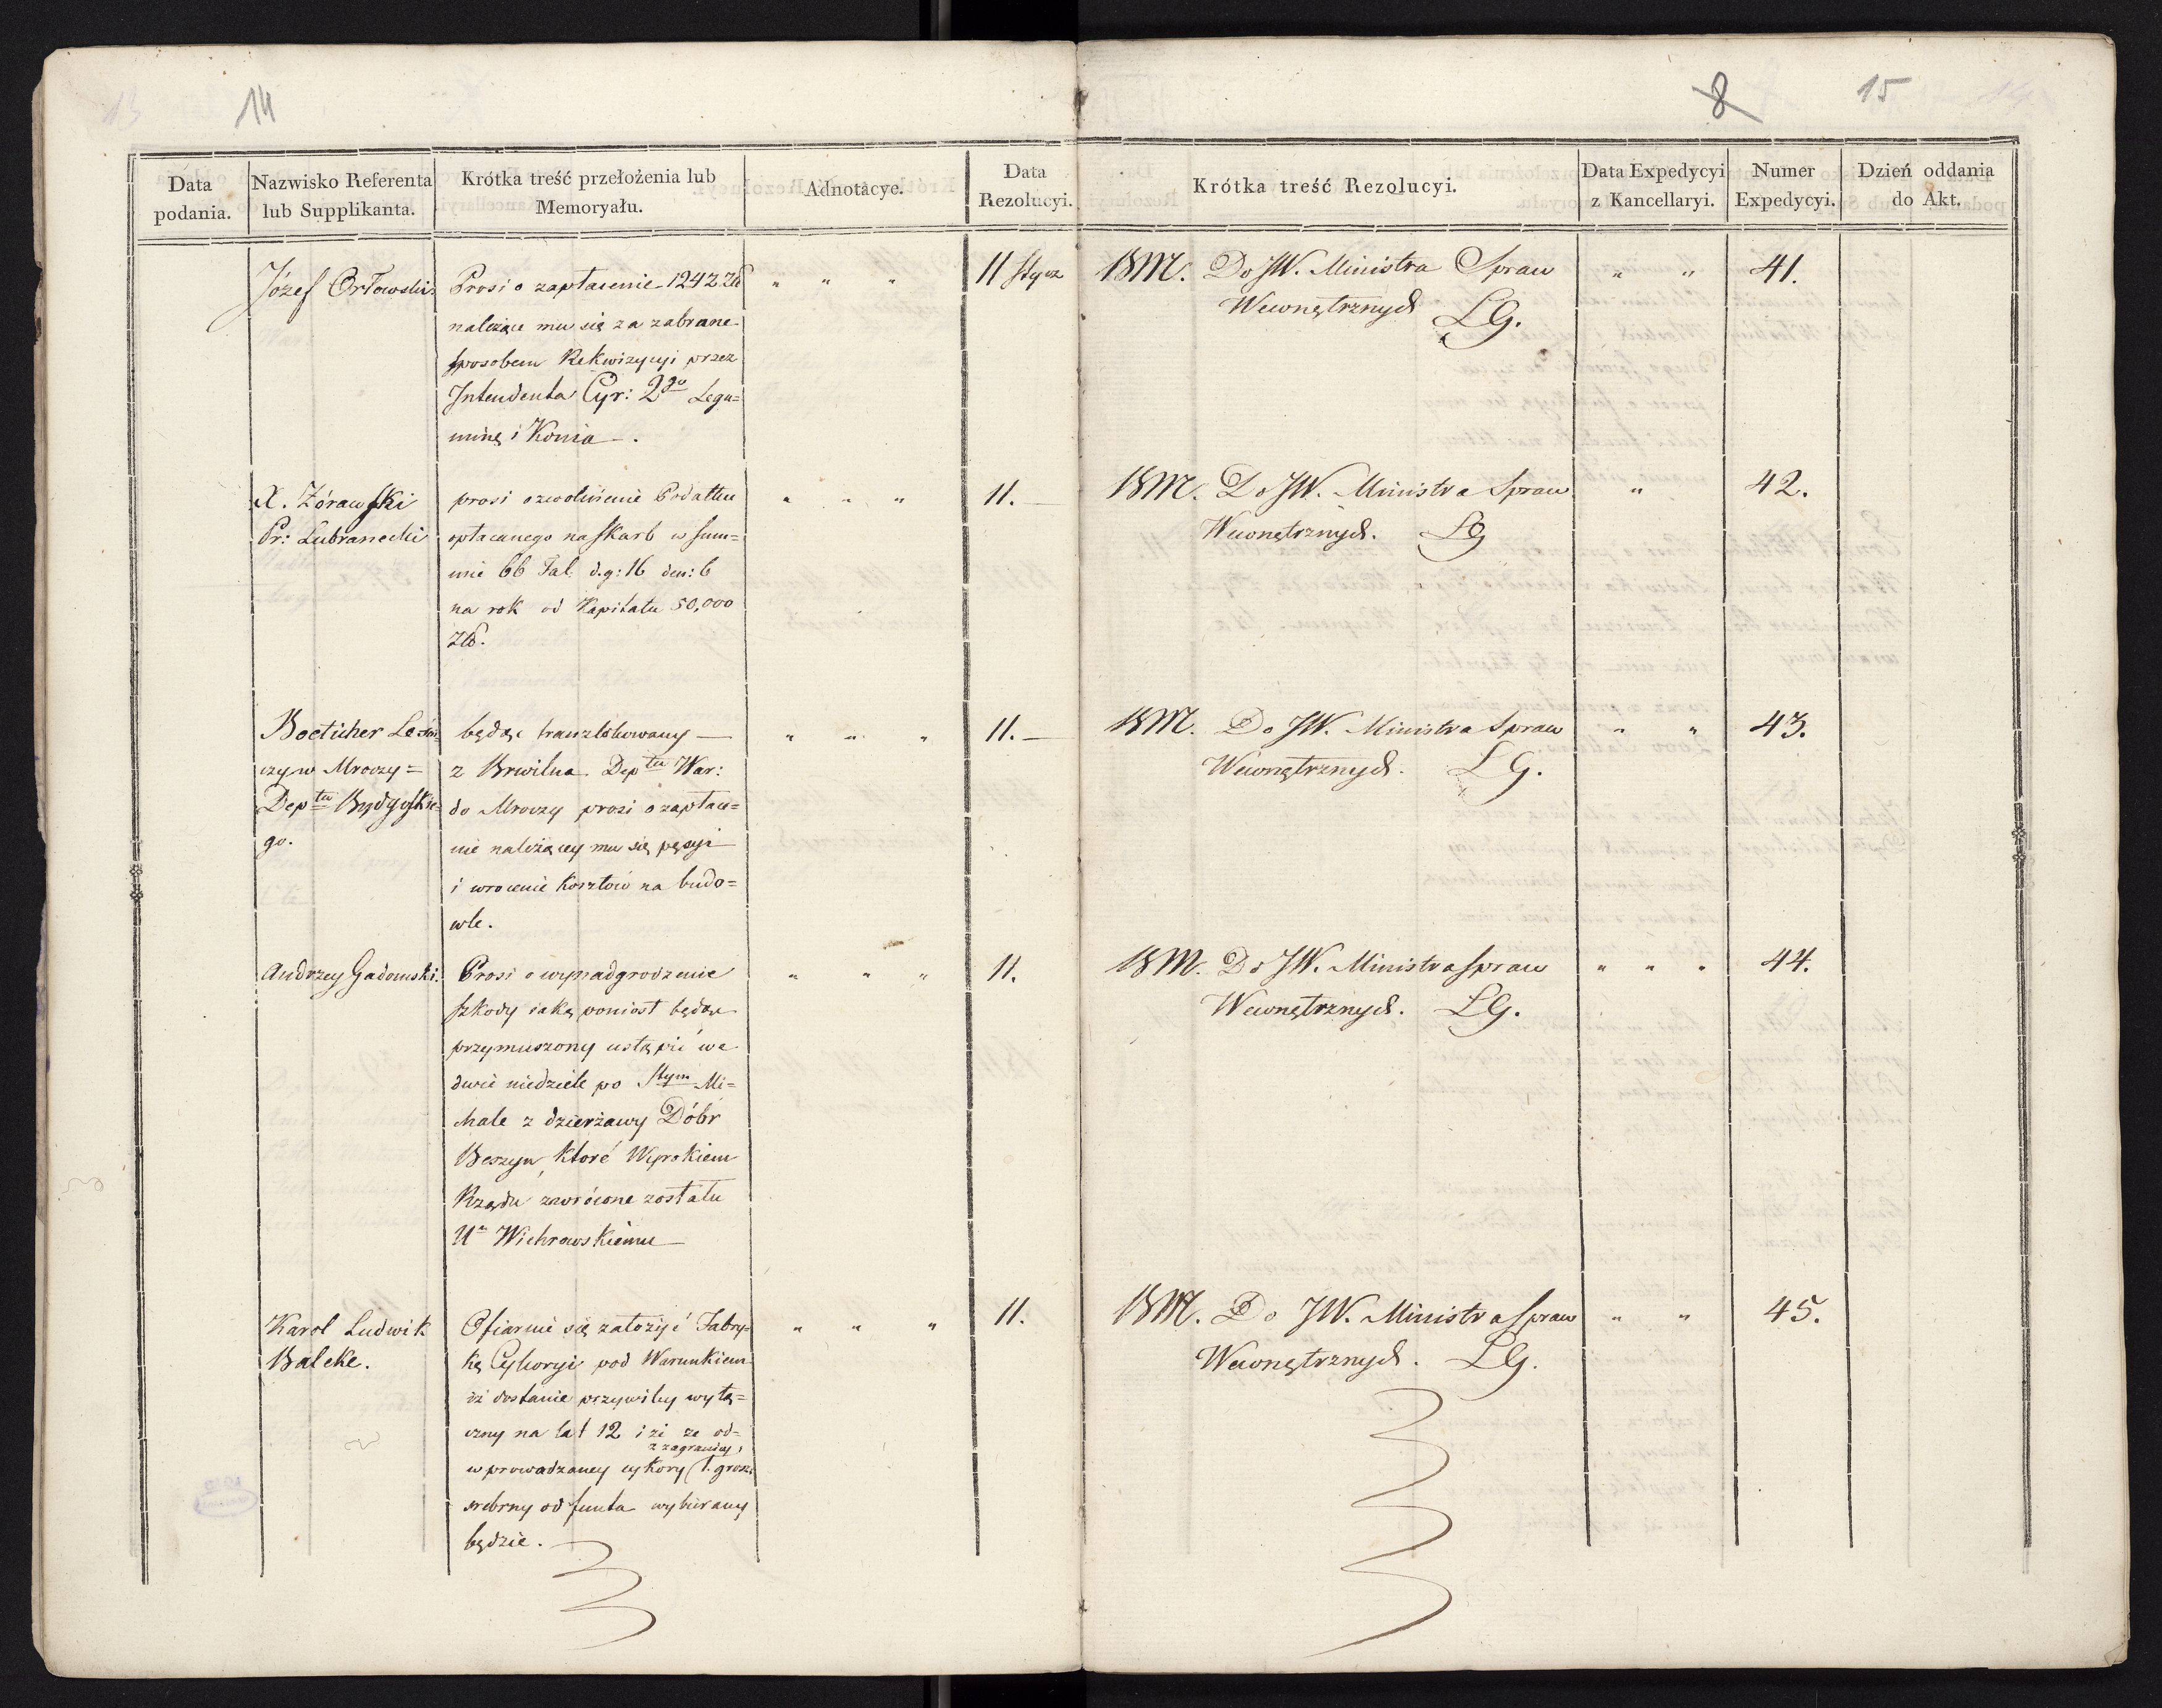 14
8
15
Data podania.
Nazwisko Referenta lub Supplikanta.
Krótka treść przełożenia lub Memoryału.
Adnotacye.
Data Rezolucyi.
Krótka treść Rezolucyi.
Data Expedycyi z Kancellaryi.
Numer Expedycyi.
Dzień oddania do Akt.
Józef Orłowski
Prosi o zapłacenie 1242 Zł
należące mu się za zabrane
sposobem Rekwizycyi przez
Intendenta Cyr: 2go Legu=
minę i Konia —.
" " "
11 Stycz
BM. Do JW. Ministra Spraw
Wewnętrznych LG.
" "
41.
X. Żórawski
Pr: Lubranecki
prosi o zwolnienie Podatku
opłacanego na skarb w sum=
mie 66 Tal. d.g: 16 den: 6
na rok od Kapitału 50,000
Zł.
" " "
11. —
BM. Do JW. Ministra Spraw
Wewnętrznych. LG
"
42.
Boeticher Leśni=
czy w Mroczy=
Deptu Bydgoskie=
go.
będąc tranzlokowany —
z Brwilna Deptu War:
do Mroczy prosi o zapłace=
nie należącey mu się pęsyi
i wrocenie Kosztów na budo=
wle.
" " "
11. —
BM. Do JW. Ministra Spraw
Wewnętrznych. LG.
" "
43.
Andrzey Gadomski.
Prosi o wynadgrodzenie
szkody iaką poniosł będąc
przymuszony ustąpić we
dwie niedziele po Stym Mi=
chale z dzierżawy Dóbr
Beszyn, ktoré Wyrokiem
Rządu zawrócone zostału
Ur Wichrowskiemu —
" " "
11.
BM. Do JW. Ministra Spraw
Wewnętrznych. LG.
" " "
44.
Karol Ludwik
Balcke.
Ofiaruie się założyć Fabry=
kę Cykoryi pod Warunkiem
iż dostanie przywiley wyłą=
czny na lat 12 i że ze od=
z zagranicy
wprowadzaney cykory 1. grosz
srebrny od funta wybierany
będzie.
" " "
11.
BM. Do JW. Ministra Spraw
Wewnętrznych. LG.
" "
45.